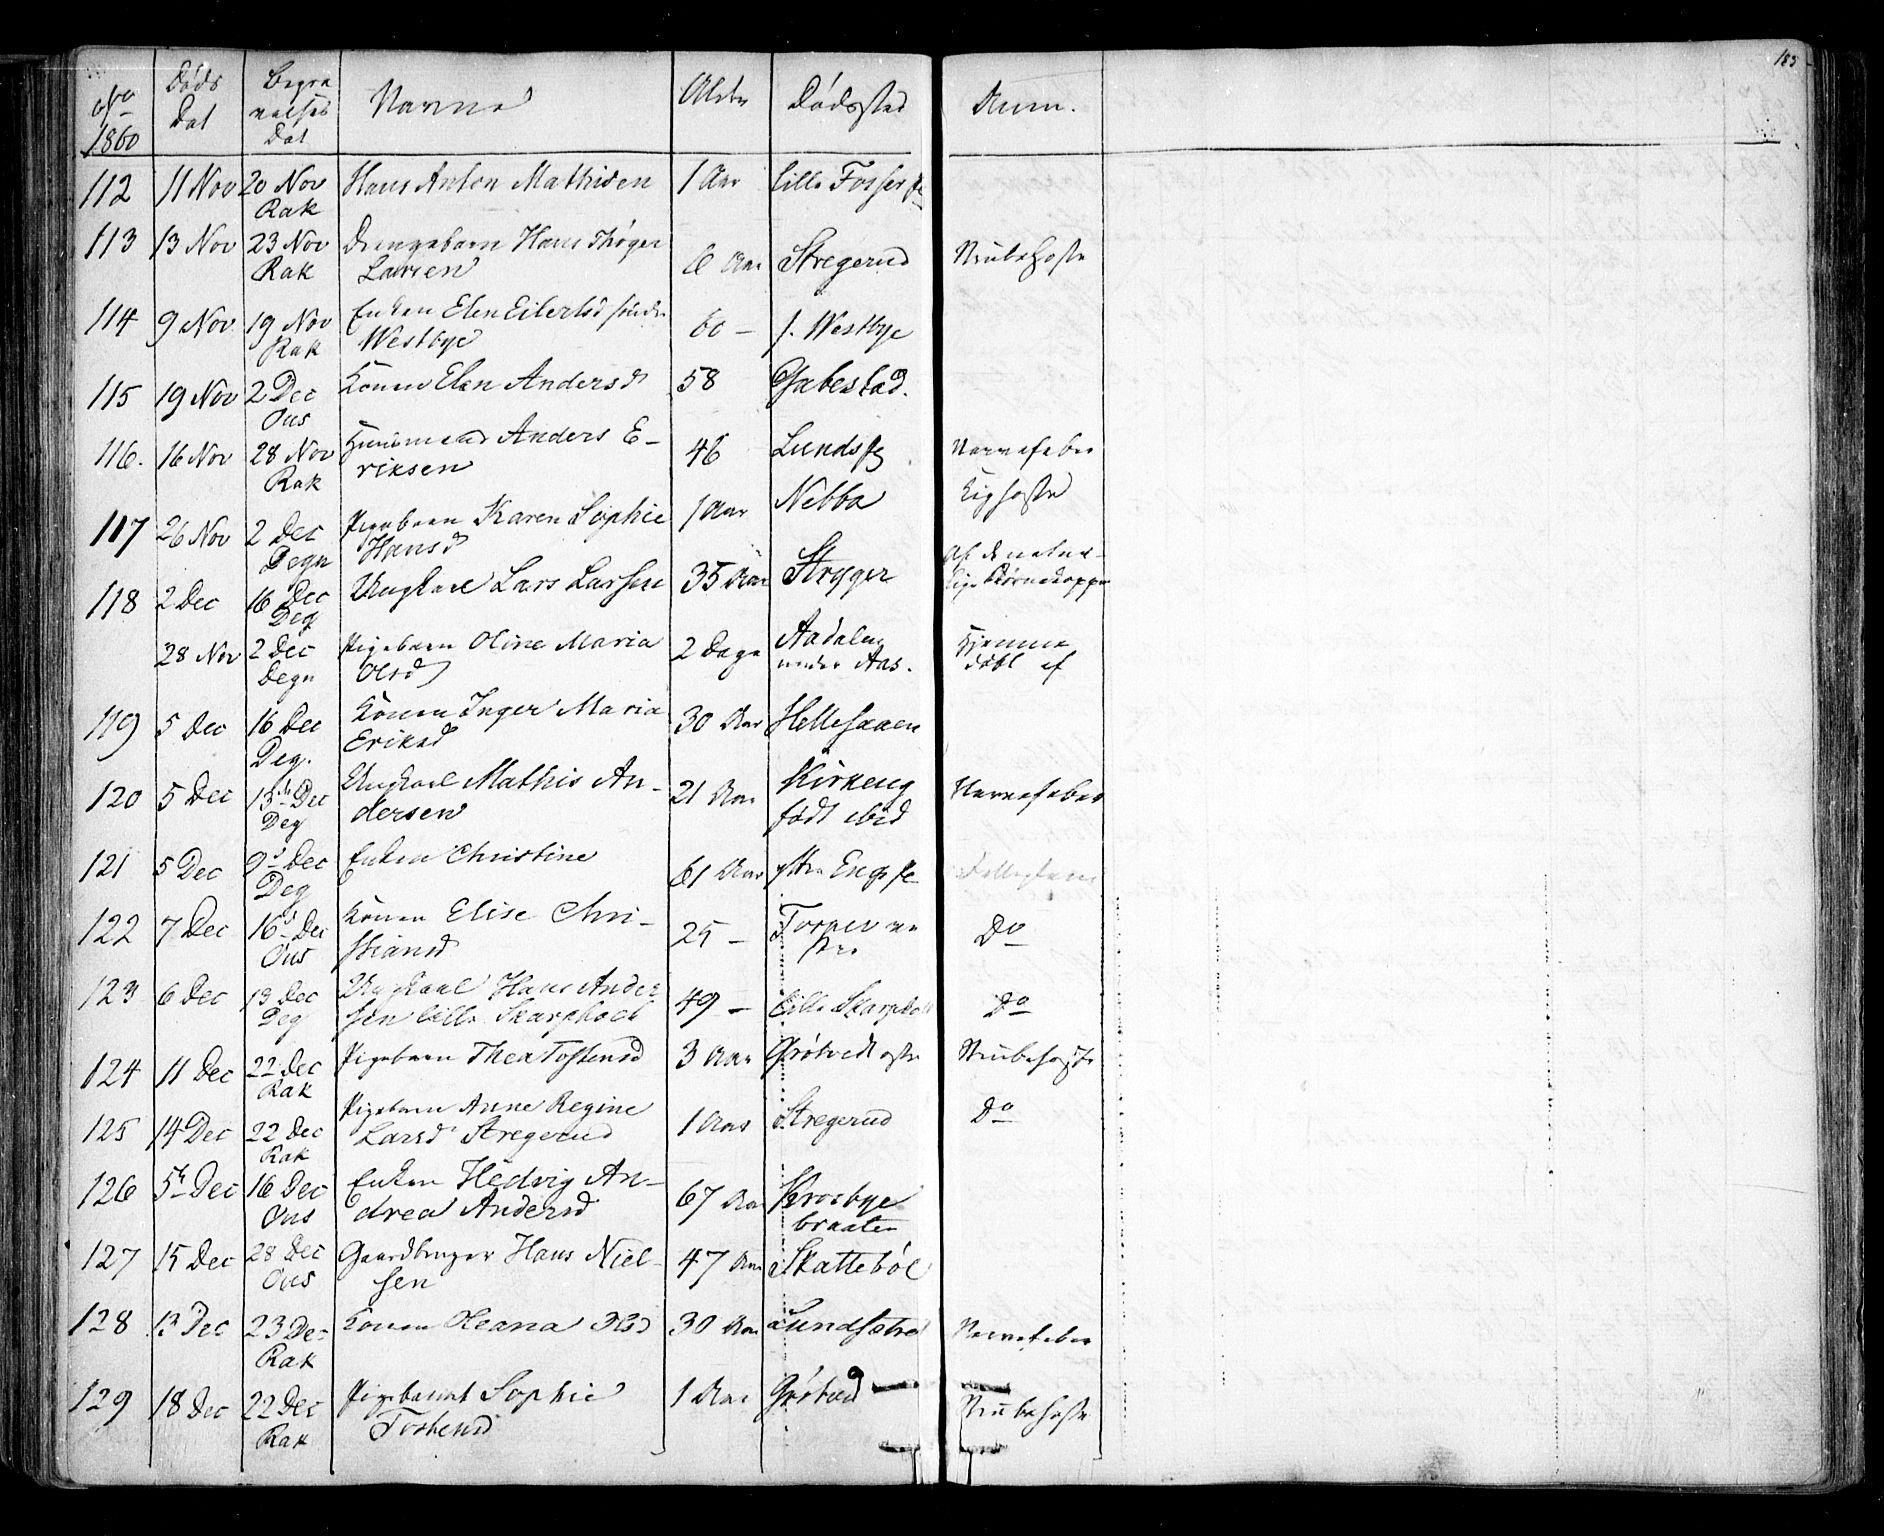 183
No 1860 Døds Dat Begravelses Dat Navne Alder Dødssted Anm.
112 11 Nov 20 Nov Hans Anton Mathisen 1 Aar Lille Fosser
Rak
113 13 Nov 23 Nov Drengebarn Hans Thøger 6 Aar Stregerud Strubehoste
Rak Larsen
114 9 Nov 19 Nov Enken Elen Eilertsd 60 – Westbye
Rak Westbye
115 19 Nov 2 Dec Konen Elen Andersd 58 Gabestad.
Ous
116. 16 Nov 28 Nov Huusmand Anders E- 46 Lunds Nervefeber
Rak riksen
117 26 Nov 2 Dec Pigebarn Karen Sophie 1 Aar Nebba Kighoste
Degn Hansd
118 2 Dec 16 Dec Ungkarl Lars Larsen 35 Aar Stryger Af de natur-
Deg lige Børnekopper
28 Nov 2 Dec Pigebarn Oline Maria 2 Dage Aadalen Hjemme
Degn Olsd under Aas. døbt af
119 5 Dec 16 Dec Konen Inger Maria 30 Aar Hellesaaen
Deg. Eriksd
120 5 Dec 15de Dec Ungkarl Mathis An- 21 Aar Kirkeng Nervefeber
Deg dersen født ibid
121 5 Dec 9d Dec Enken Christine 61 Aar Eng
Deg
122 7 Dec 16d Dec Konen Elise Chri- 25 – Do
Ous stiansd
123 6 Dec 19 Dec Ungkarl Hans Ander 49 – Lille Skarphol Do
Deg sen Lille Skarphoel
124 11 Dec 22 Dec Pigebarn Thea Tostensd 3 Aar Grøtvedt Strubehoste
Rak
125 14 Dec 22 Dec Pigebarn Anne Regine 1 Aar Stregerud Do
Rak Larsd Stregerud
126 5te Dec 16 Dec Enken Hedvig An- 67 Aar Krosbye
Ous drea Andersd braaten
127 15 Dec 28 Dec Gaardbruger Hans Niel- 47 Aar Skattebøl
Ous sen
128 13 Dec 23 Dec Konen Oleana Olsd 30 Aar Nervefeber
Rak
129 18 Dec 22 Dec Pigebarnet Sophie 1 Aar Grøtved Strubehoste
Rak Tostensd